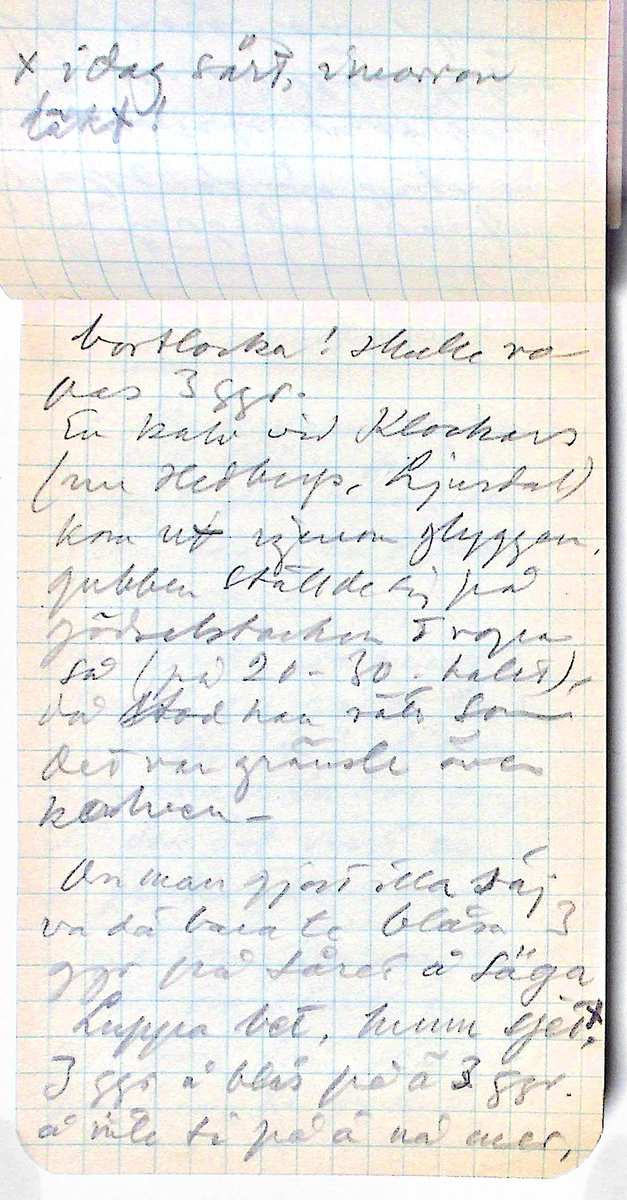 x idag sårt, imorron
täkt!
bortlocka! skulle va
pas 3 ggr.
En kalv vid Klockars
(nu Hedbergs, Ljusdal)
kom ut igenom gluggen,
gubben ställde sig på
gödselstacken å ropa
så (på 20-30-talet),
då stod han rätt som
det var gränsle över
kalven –
Om man gjort illa säj
va dä bara te blåsa 3
ggr på såret å säga
Luppa bet, hunn sjet,x
3 ggr å blås på ä 3 ggr.
å inte ti på ä nå mer,